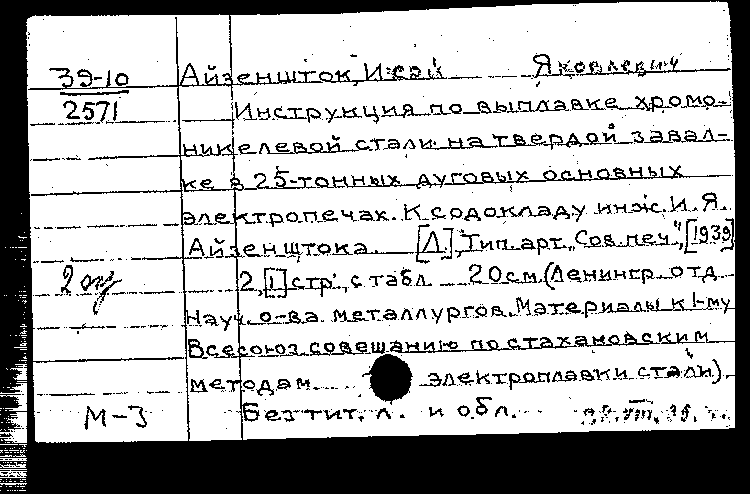 39-10 Айзеншток, Исай Яковлевич
2571 Инструкция по выплавке хромо-
никелевой стали на твердой завал-
ке в 25-тонных дуговых основных
электропечах. К содокладу инж. И. Я.
Айзенштока. [Л.], Тип. арт. "Сов. печ.", [1939]
2 экз 2, [1] стр., с табл. 20 см. (Ленингр. отд.
Науч. о-ва металлургов. Материалы к 1-му
Всесоюз. совещанию по стахановским
методам электроплавки стали).
М-3 Без тит. л. и обл.